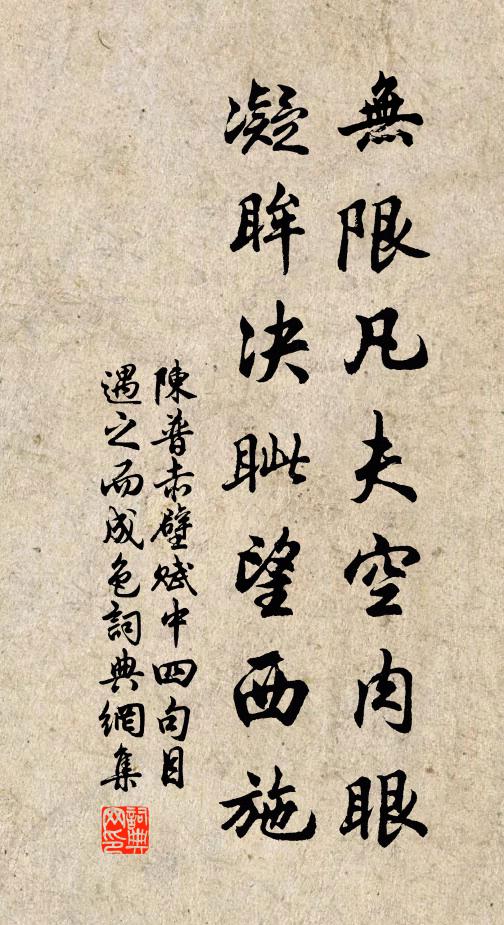 無限凡夫空肉眼
凝眸決眦望西施
陳普赤壁賦中四句目
遇之而成色詞典網集
詞典網印